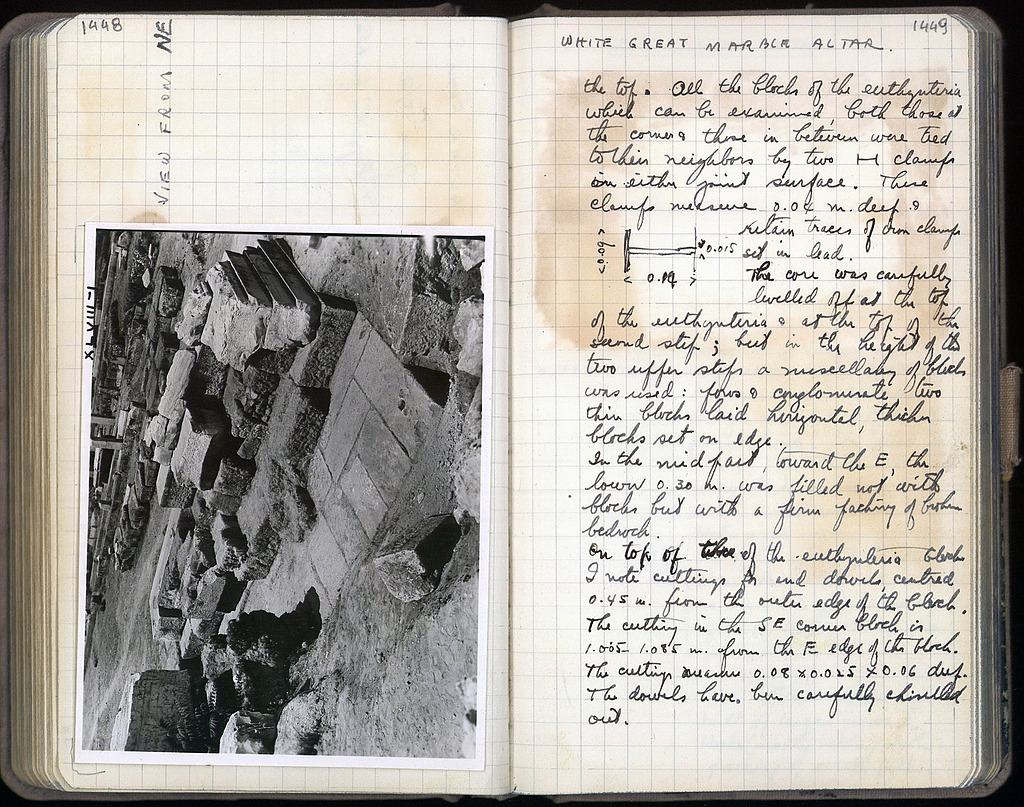 1448
VIEW FROM NE
XLVIII-1
1449
WHITE GREAT MARBLE ALTAR.
the top. All the blocks of the euthynteria
which can be examined, both those at
the corners & those in between were tied
to their neighbors by two H clamps
on either joint surface. These
clamps measure 0.04 m. deep &
retain traces of iron clamps
<0.09>
0.015 set in lead.
< 0.19 > The core was carefully
levelled off at the top
of the euthynteria & at the top of the
second step; but in the height of the
two upper steps a miscellany of blocks
was used: poros & conglomerate, two
thin blocks laid horizontal, thicker
blocks set on edge.
In the mid part, toward the E, the
lower 0.30 m. was filled not with
blocks but with a firm packing of broken
bedrock.
On top of of the euthynteria blocks
I note cuttings for end dowels centred
0.45 m. from the outer edge of the block.
The cutting in the SE corner block is
1.005-1.085 m. from the E edge of the block.
The cuttings measure 0.08 x 0.025 x 0.06 deep.
The dowels have been carefully chiselled
out.